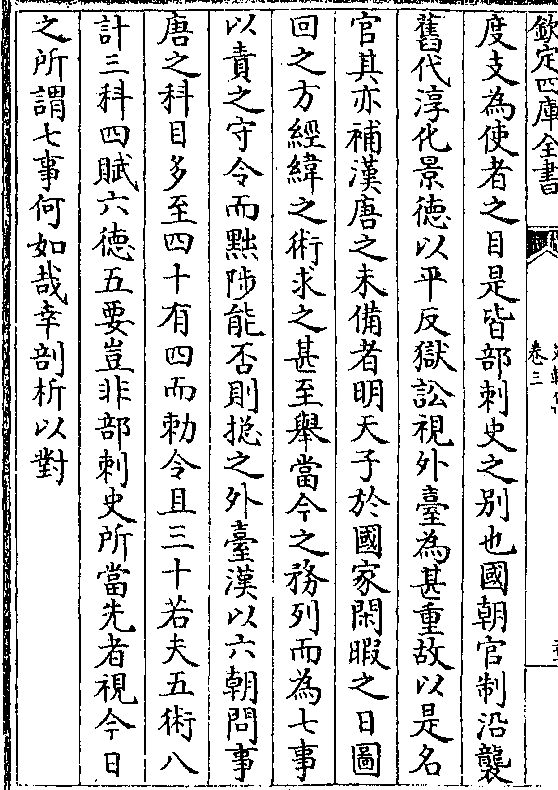 欽定四庫全書
卷三
度支為使者之目是皆部刺史之別也國朝官制沿襲
舊代淳化景德以平反獄訟視外臺為甚重故以是名
官其亦補漢唐之未備者明天子於國家閑暇之日圖
回之方經緯之術求之甚至舉當今之務列而為七事
以責之守令而黜陟能否則捴之外臺漢以六朝問事
唐之科目多至四十有四而勅令且三十若夫五術八
計三科四賦六德五要豈非部刺史所當先者視今日
之所謂七事何如哉幸剖析以對